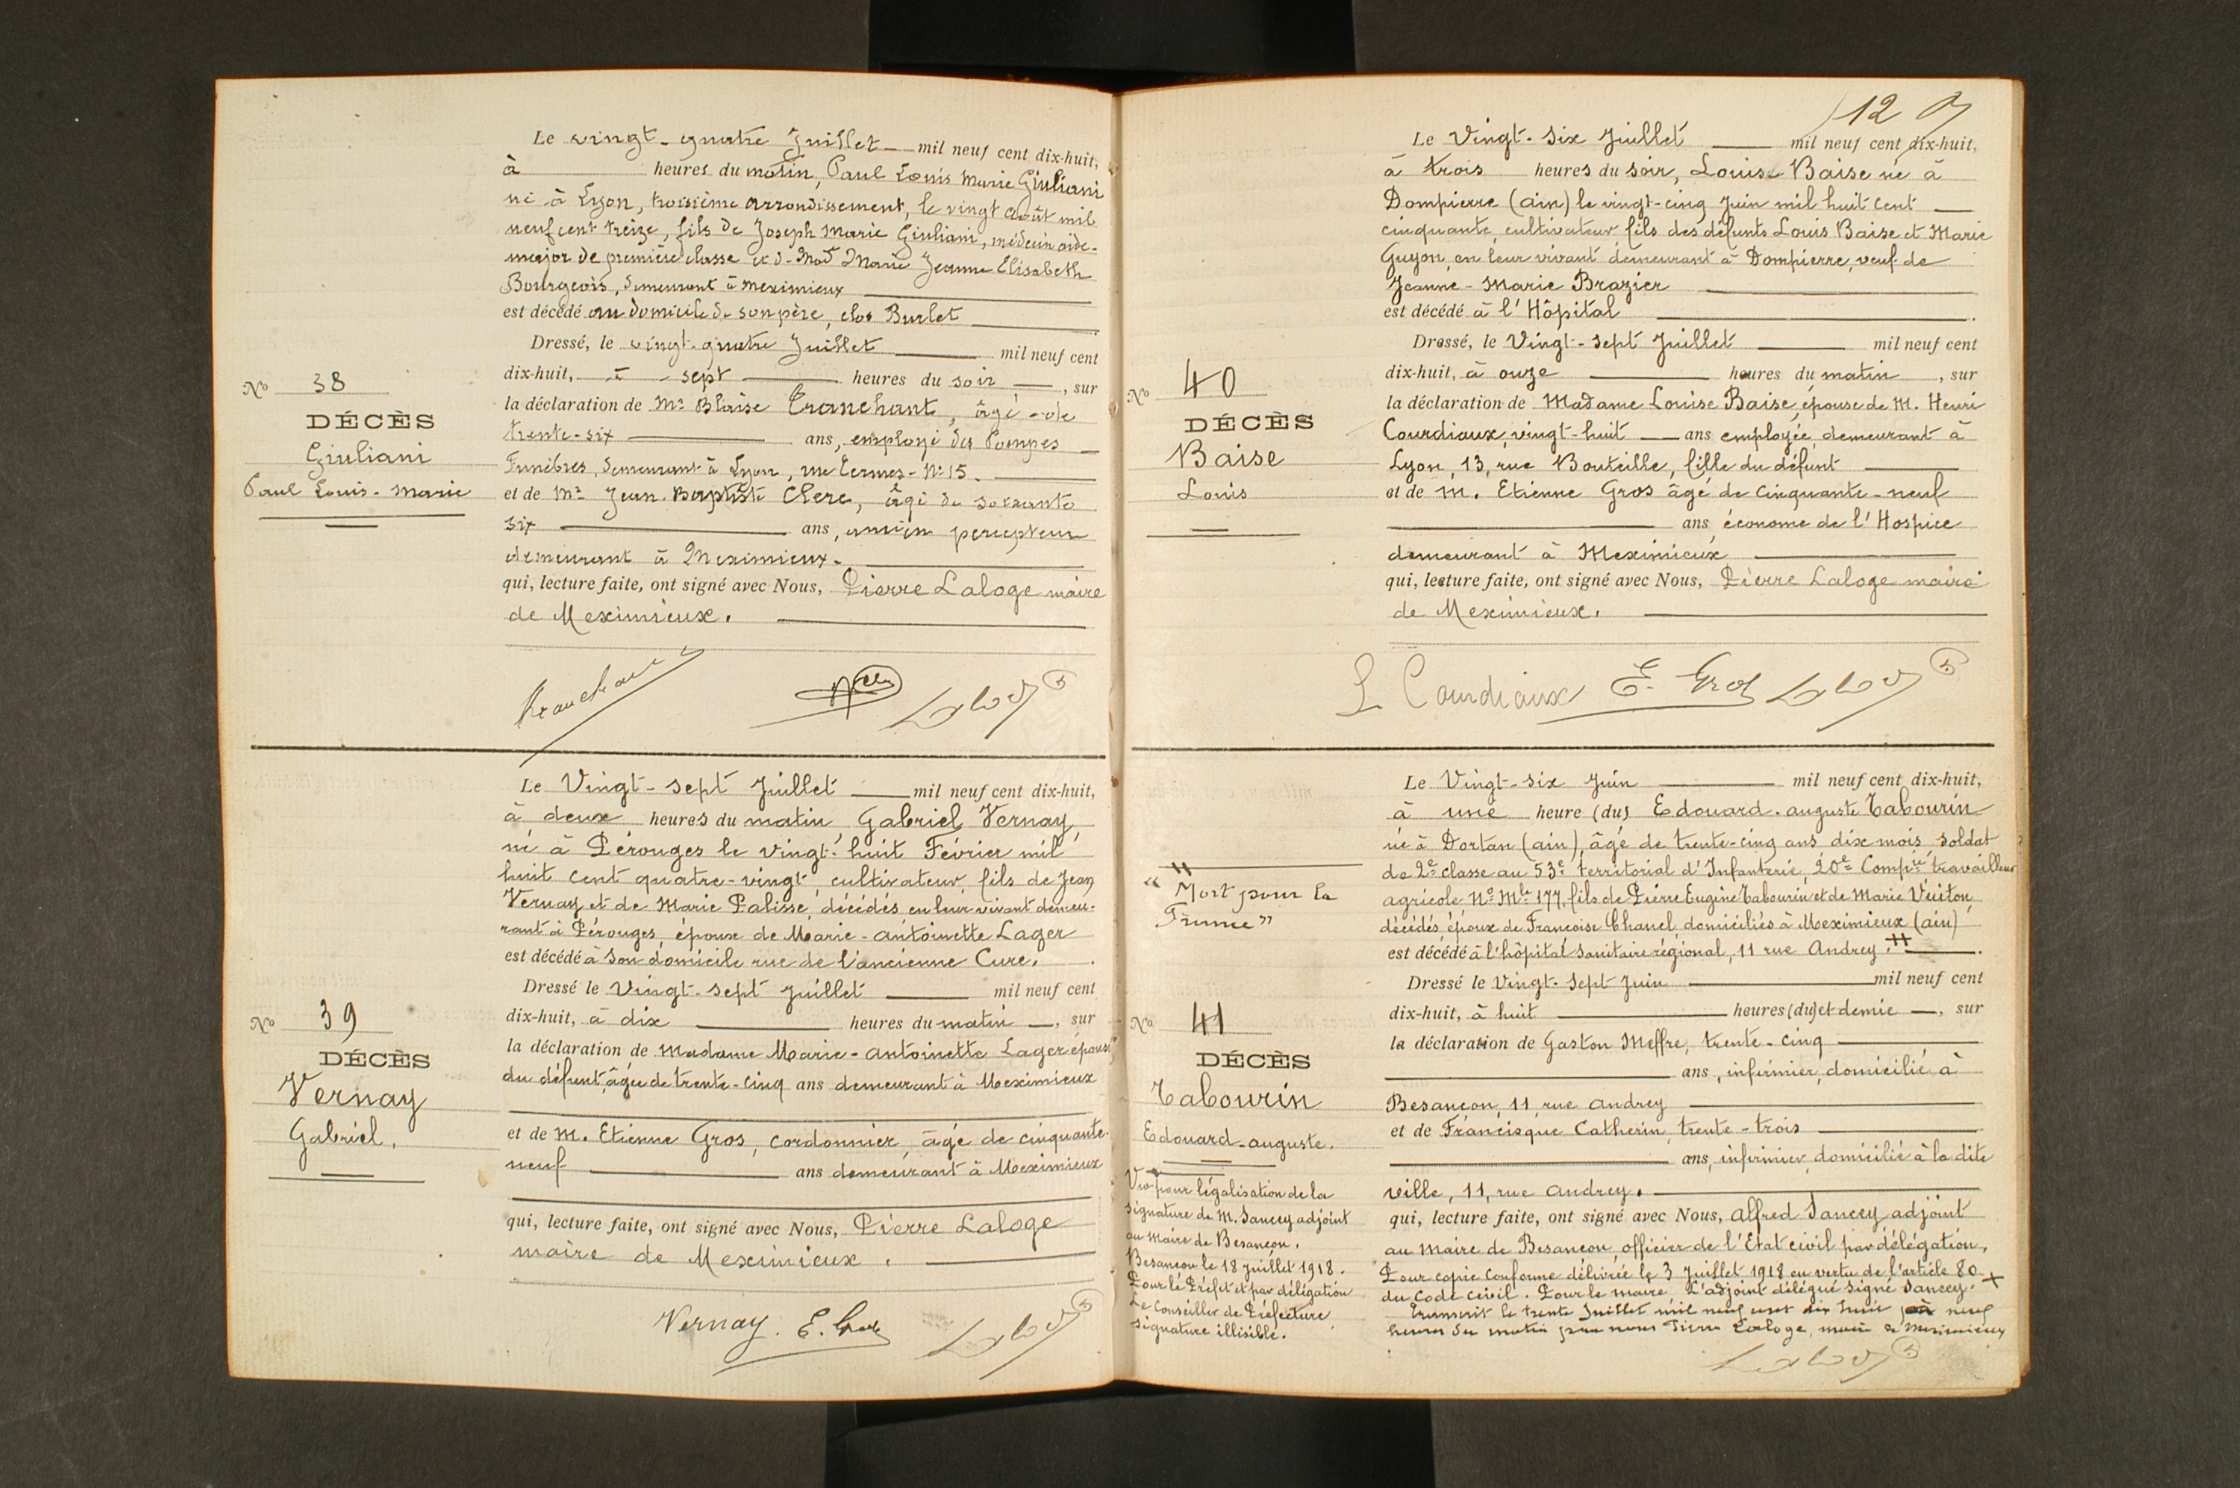 Le vingt-quatre Juillet mil neuf cent dix-huit,
à heures du matin, Paul Louis Marie Giuliani
né à Lyon, troisième arrondissement, le vingt août mil
neuf cent treize, fils de Joseph Marie Giuliani, médecin aide-
major de première classe et d Mad Marie Jeanne Elisabeth
Bourgeois, demeurant à Meximieux
est décédé au domicile de son père, clos Burlet
Dressé, le vingt-quatre Juillet mil neuf cent
dix-huit, à sept heures du soir, sur
la déclaration de Mr Blaise Tranchant, âgé de
trente-six ans, employé des Pompes
Funèbres, demeurant à Lyon, rue Termes - No 15.
et de Mr Jean-Baptiste Clerc, âgé de soixante
six ans, ancien percepteur
demeurant à Meximieux.
qui, lecture faite, ont signé avec Nous, Pierre Laloge maire
de Meximieux.
No 38
DÉCÈS
Giuliani
Paul Louis-Marie
Tranchant Laloge
Le Vingt-sept Juillet mil neuf cent dix-huit,
à deux heures du matin, Gabriel Vernay,
né à Pérouges le vingt-huit Février mil
huit cent quatre-vingt, cultivateur, fils de Jean
Vernay et de Marie Palisse, décédés, en leur vivant demeu-
rant à Pérouges, époux de Marie-Antoinette Lager
est décédé à son domicile rue de l'ancienne Cure.
Dressé le Vingt-sept Juillet mil neuf cent
dix-huit, à dix heures du matin, sur
la déclaration de Madame Marie-Antoinette Lager épouse
du défunt, âgée de trente-cinq ans demeurant à Meximieux
et de M. Etienne Gros, cordonnier, âgé de cinquante-
neuf ans demeurant à Meximieux
qui, lecture faite, ont signé avec Nous, Pierre Laloge
maire de Meximieux.
No 39
DÉCÈS
Vernay
Gabriel.
Vernay. E. Gros Laloge
12
Le Vingt-six Juillet mil neuf cent dix-huit,
à trois heures du soir, Louis Baise né à
Dompierre (ain) le vingt-cinq Juin mil huit cent
cinquante, cultivateur fils des défunts Louis Baise et Marie
Guyon, en leur vivant demeurant à Dompierre, veuf de
Jeanne-Marie Brazier
est décédé à l'Hôpital
Dressé, le Vingt-sept Juillet mil neuf cent
dix-huit, à onze heures du matin, sur
la déclaration de Madame Louise Baise, épouse de M. Henri
Courdiaux, vingt-huit ans employée, demeurant à
Lyon, 13, rue Bouteille, fille du défunt
et de M. Etienne Gros âgé de cinquante-neuf
ans, économe de l'Hospice
demeurant à Meximieux
qui, lecture faite, ont signé avec Nous, Pierre Laloge maire
de Meximieux.
No 40
DÉCÈS
Baise
Louis
L Courdiaux E. Gros Laloge
Le Vingt-six Juin mil neuf cent dix-huit,
à une heure (du) Edouard-auguste Tabourin
né à Dortan (ain), âgé de trente-cinq ans dix mois, soldat
de 2e classe au 53e territorial d'Infanterie, 20e Compie travailleur
agricole No Mle 177, fils de Pierre Eugène Tabourin et de Marie Vuiton,
décédés, époux de Françoise Chanel, domiciliés à Meximieux (ain)
est décédé à l'hôpital sanitaire régional, 11 rue Andrey.
Dressé le Vingt-sept Juin mil neuf cent
dix-huit, à huit heures (du) et demie, sur
la déclaration de Gaston Meffre, trente-cinq
ans, infirmier, domicilié à
Besançon, 11, rue andrey
et de Francisque Catherin, trente-trois
ans, infirmier, domicilié à la dite
ville, 11, rue andrey.
qui, lecture faite, ont signé avec Nous, alfred Sancey adjoint
au maire de Besançon, officier de l'Etat civil par délégation.
Pour copie conforme délivrée le 3 Juillet 1918 en vertu de l'article 80
du Code civil. Pour le maire L'adjoint délégué signé Sancey.
Transcrit le trente Juillet mil neuf cent dix huit à neuf
heures du matin par nous Pierre Laloge, maire de Meximieux
Laloge
"Mort pour la
France"
No 41
DÉCÈS
Tabourin
Edouard-auguste.
Vu pour légalisation de la
signature de M. Sancey adjoint
au Maire de Besançon.
Besançon le 18 Juillet 1918.
Pour le Préfet et par délégation
Le Conseiller de Préfecture
signature illisible.